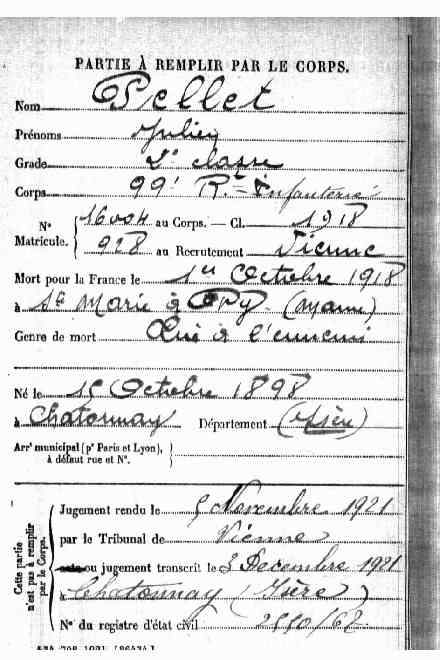 PARTIE À REMPLIR PAR LE CORPS.
Nom Pellet
Prénoms Julien
Grade 2e classe
Corps 99e R. Infanterie
N° Matricule. 16004 au Corps. — Cl. 1918
928 au Recrutement Vienne
Mort pour la France le 1er Octobre 1918
à Ste Marie à Py (Marne)
Genre de mort Tué à l'ennemi
Né le 15 Octobre 1898
à Chatonnay Département (Isère)
Arrt municipal (pr Paris et Lyon),
à défaut rue et N°.
Cette partie n'est pas à remplir par le Corps.
Jugement rendu le 5 Novembre 1921
par le Tribunal de Vienne
ou jugement transcrit le 3 Decembre 1921
à Chatonnay (Isère)
N° du registre d'état civil